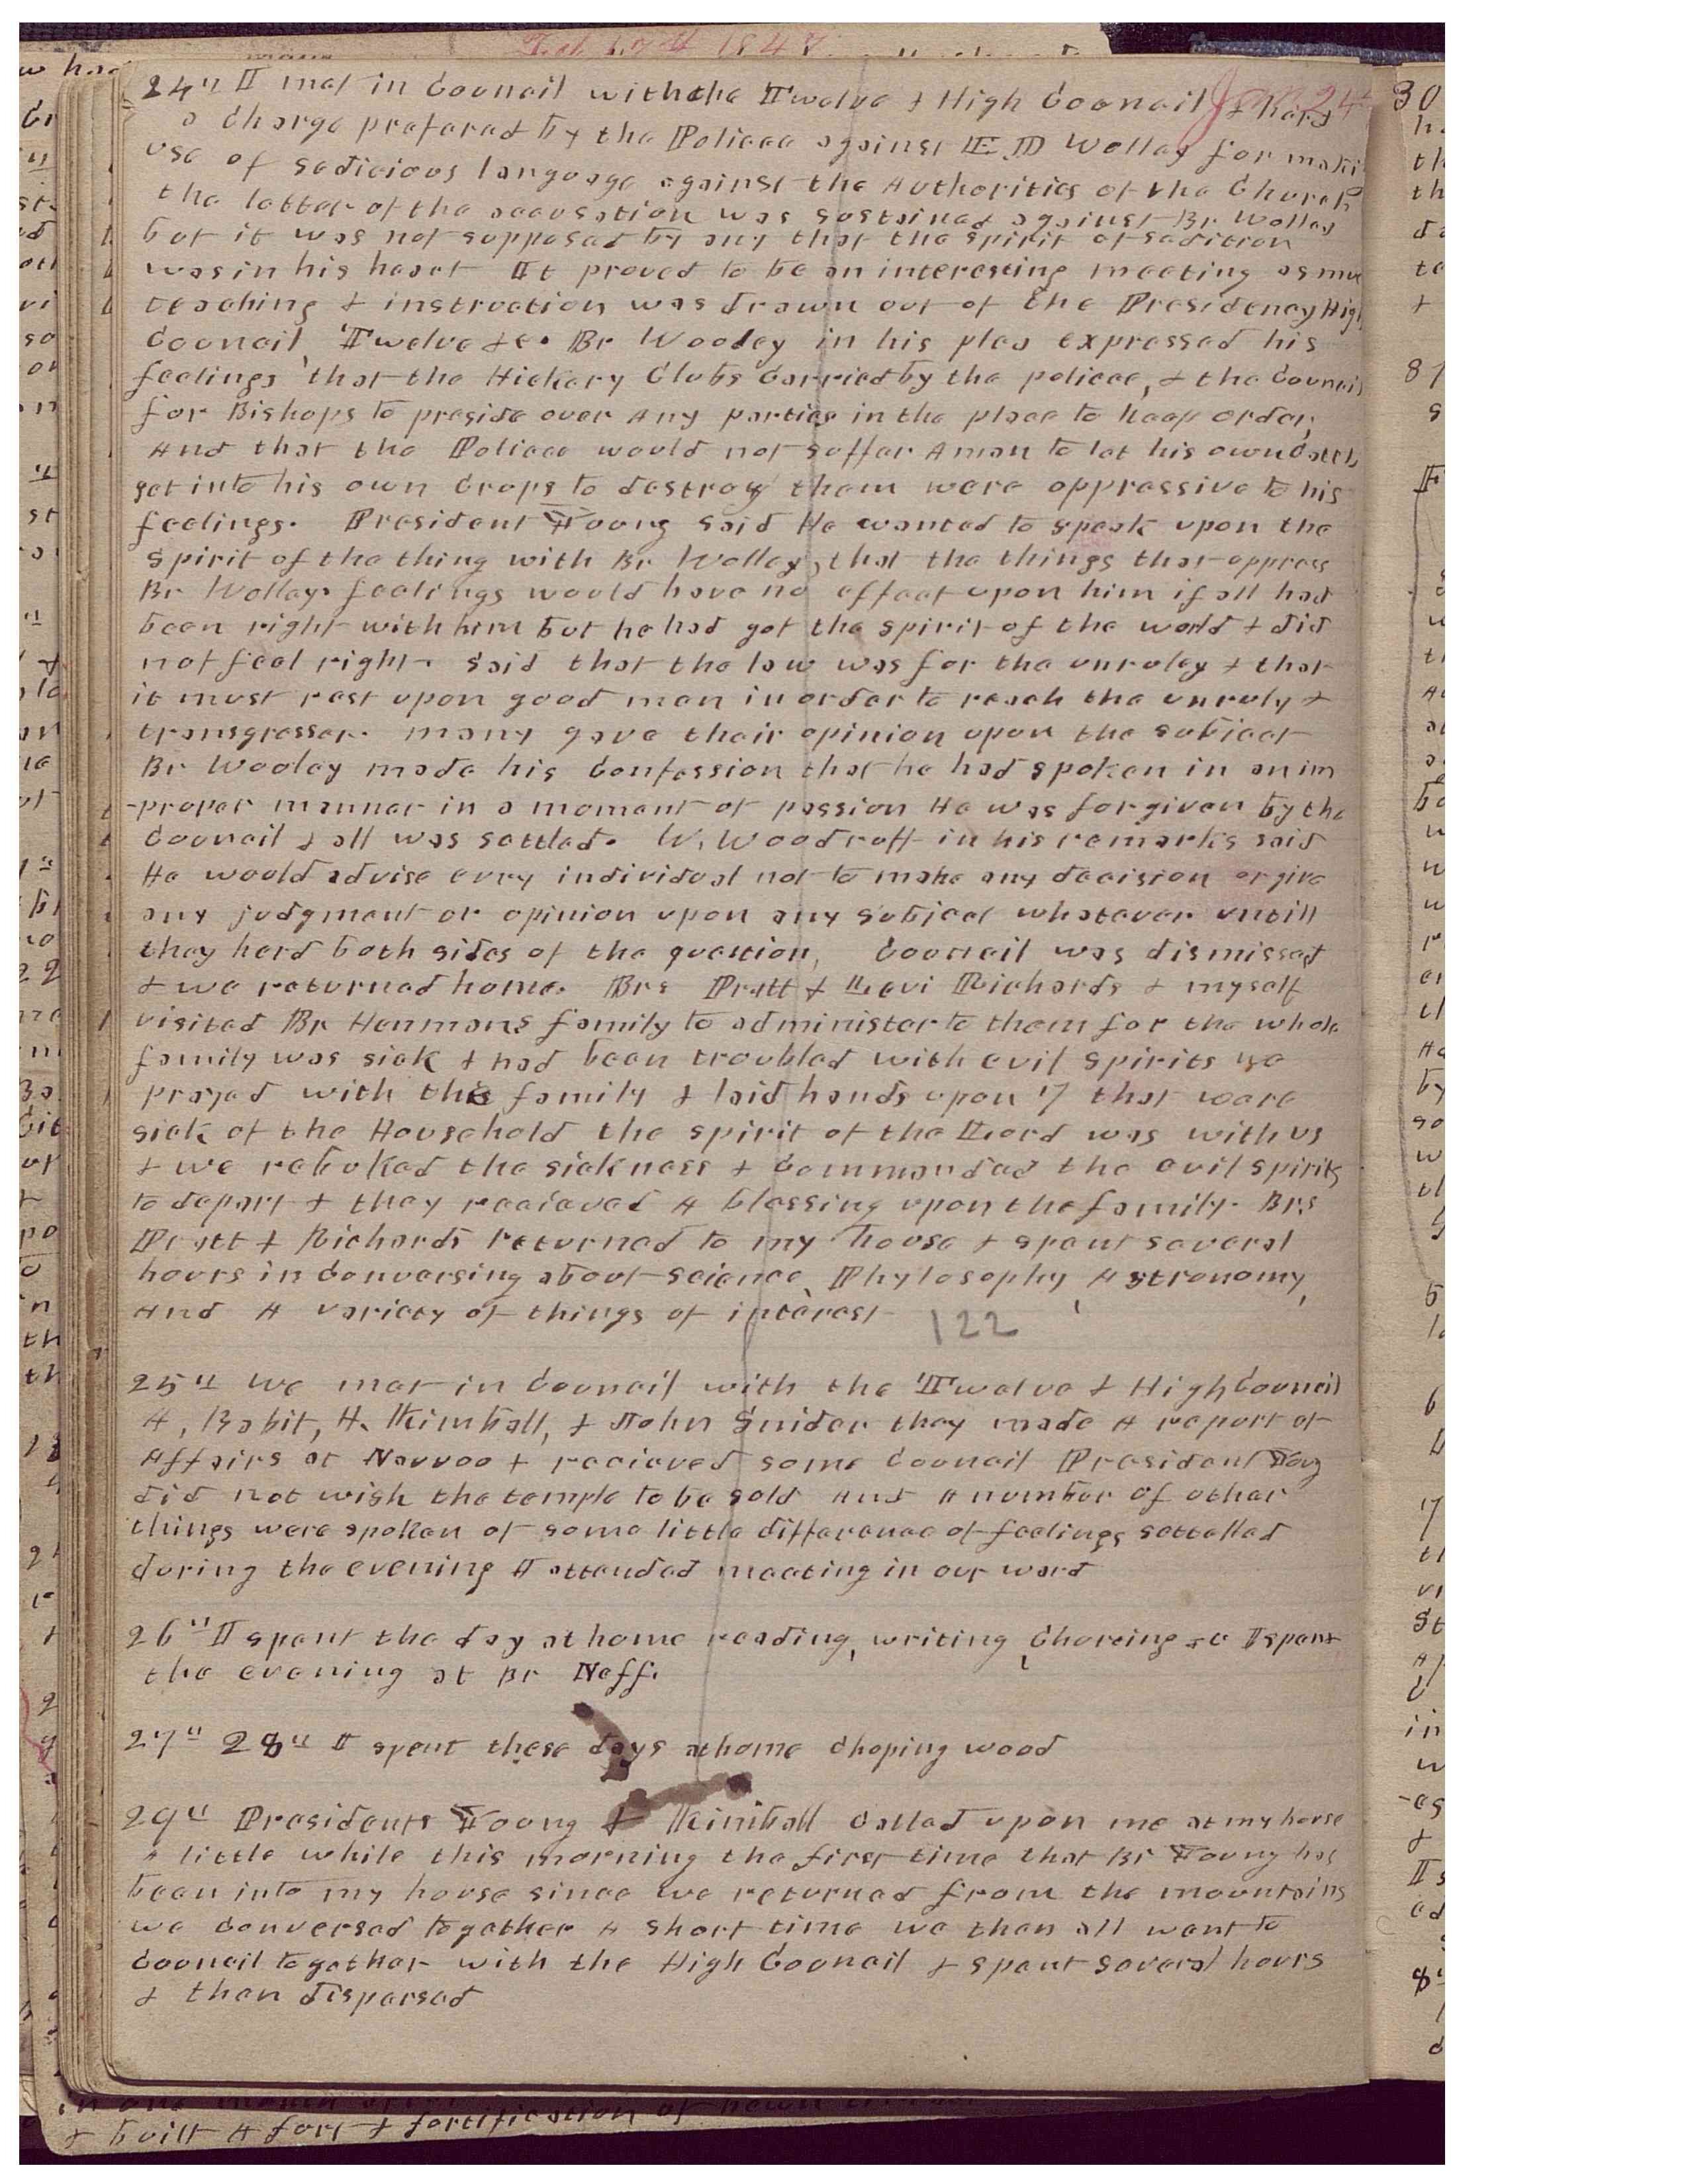 24" I met in Council with the Twelve & High Council & hard
a charge prefered by the Police against E D Wolley for making
use of sedicious language against the Authorities of the Church
the letter of the accusation was sustained against Br Wolley
but it was not supposed by any that the spirit of sedition
was in his heart It proved to be an interesting meeting as much
teaching & instruction was drawn out of the Presidency High
Council, Twelve &c. Br Wooley in his plea expressed his
feelings that the Hickery Clubs Carried by the police, & the Council
for Bishops to preside over Any parties in the place to keep order,
And that the Police would not suffer A man to let his own Cattle
get into his own Crops to destroy them were oppressive to his
feelings. President Young said He wanted to speak upon the
Spirit of the thing with Br Wolley, that the things that oppress
Br Wolleys feelings would have no effect upon him if all had
been right with him but he had got the spirit of the world & did
not feel right. said that the law was for the unruley & that
it must rest upon good men in order to reach the unruly &
transgresser. many gave their opinion upon the subject
Br Wooley made his Confession that he had spoken in an im
-proper manner in a moment of passion He was forgiven by the
Council & all was settled. W. Woodruff in his remarks said
He would advise evry individual not to make any decision or give
any judgment or opinion upon any subject whatever untill
they herd both sides of the question, Council was dismissed
& we returned home. Brs Pratt & Levi Richards & myself
visited Br Henmans family to administer to them for the whole
family was sick & had been troubled with evil spirits we
prayed with the family & laid hands upon 7 that were
sick of the Household the spirit of the Lord was with us
& we rebuked the sickness & Commanded the evil spirits
to depart & they recieved A blessing upon the family. Brs
Pratt & Richards returned to my house & spent several
hours in Conversing about science, Phylosophy, Astronomy,
And A variety of things of interest
122
25" We met in Council with the Twelve & High Council
A, Babit, H. Kimball, & John Snider they made A report of
Affairs at Nauvoo & recieved some Council President Young
did not wish the temple to be sold And A number of other
things were spoken of some little difference of feelings settelled
during the evening I attended meeting in our ward
26" I spent the day at home reading, writing, Choreing &c I spent
the evening at Br Neff.
27" 28" I spent these days at home choping wood
29" Presidents Young & Kimball Called upon me at my house
a little while this morning the first time that Br Young has
been into my house since we returned from the mountains
we Conversed together A short time we then all went to
Council together with the High Council & spent several hours
& then dispersed
& built A fort & fortification of hewn